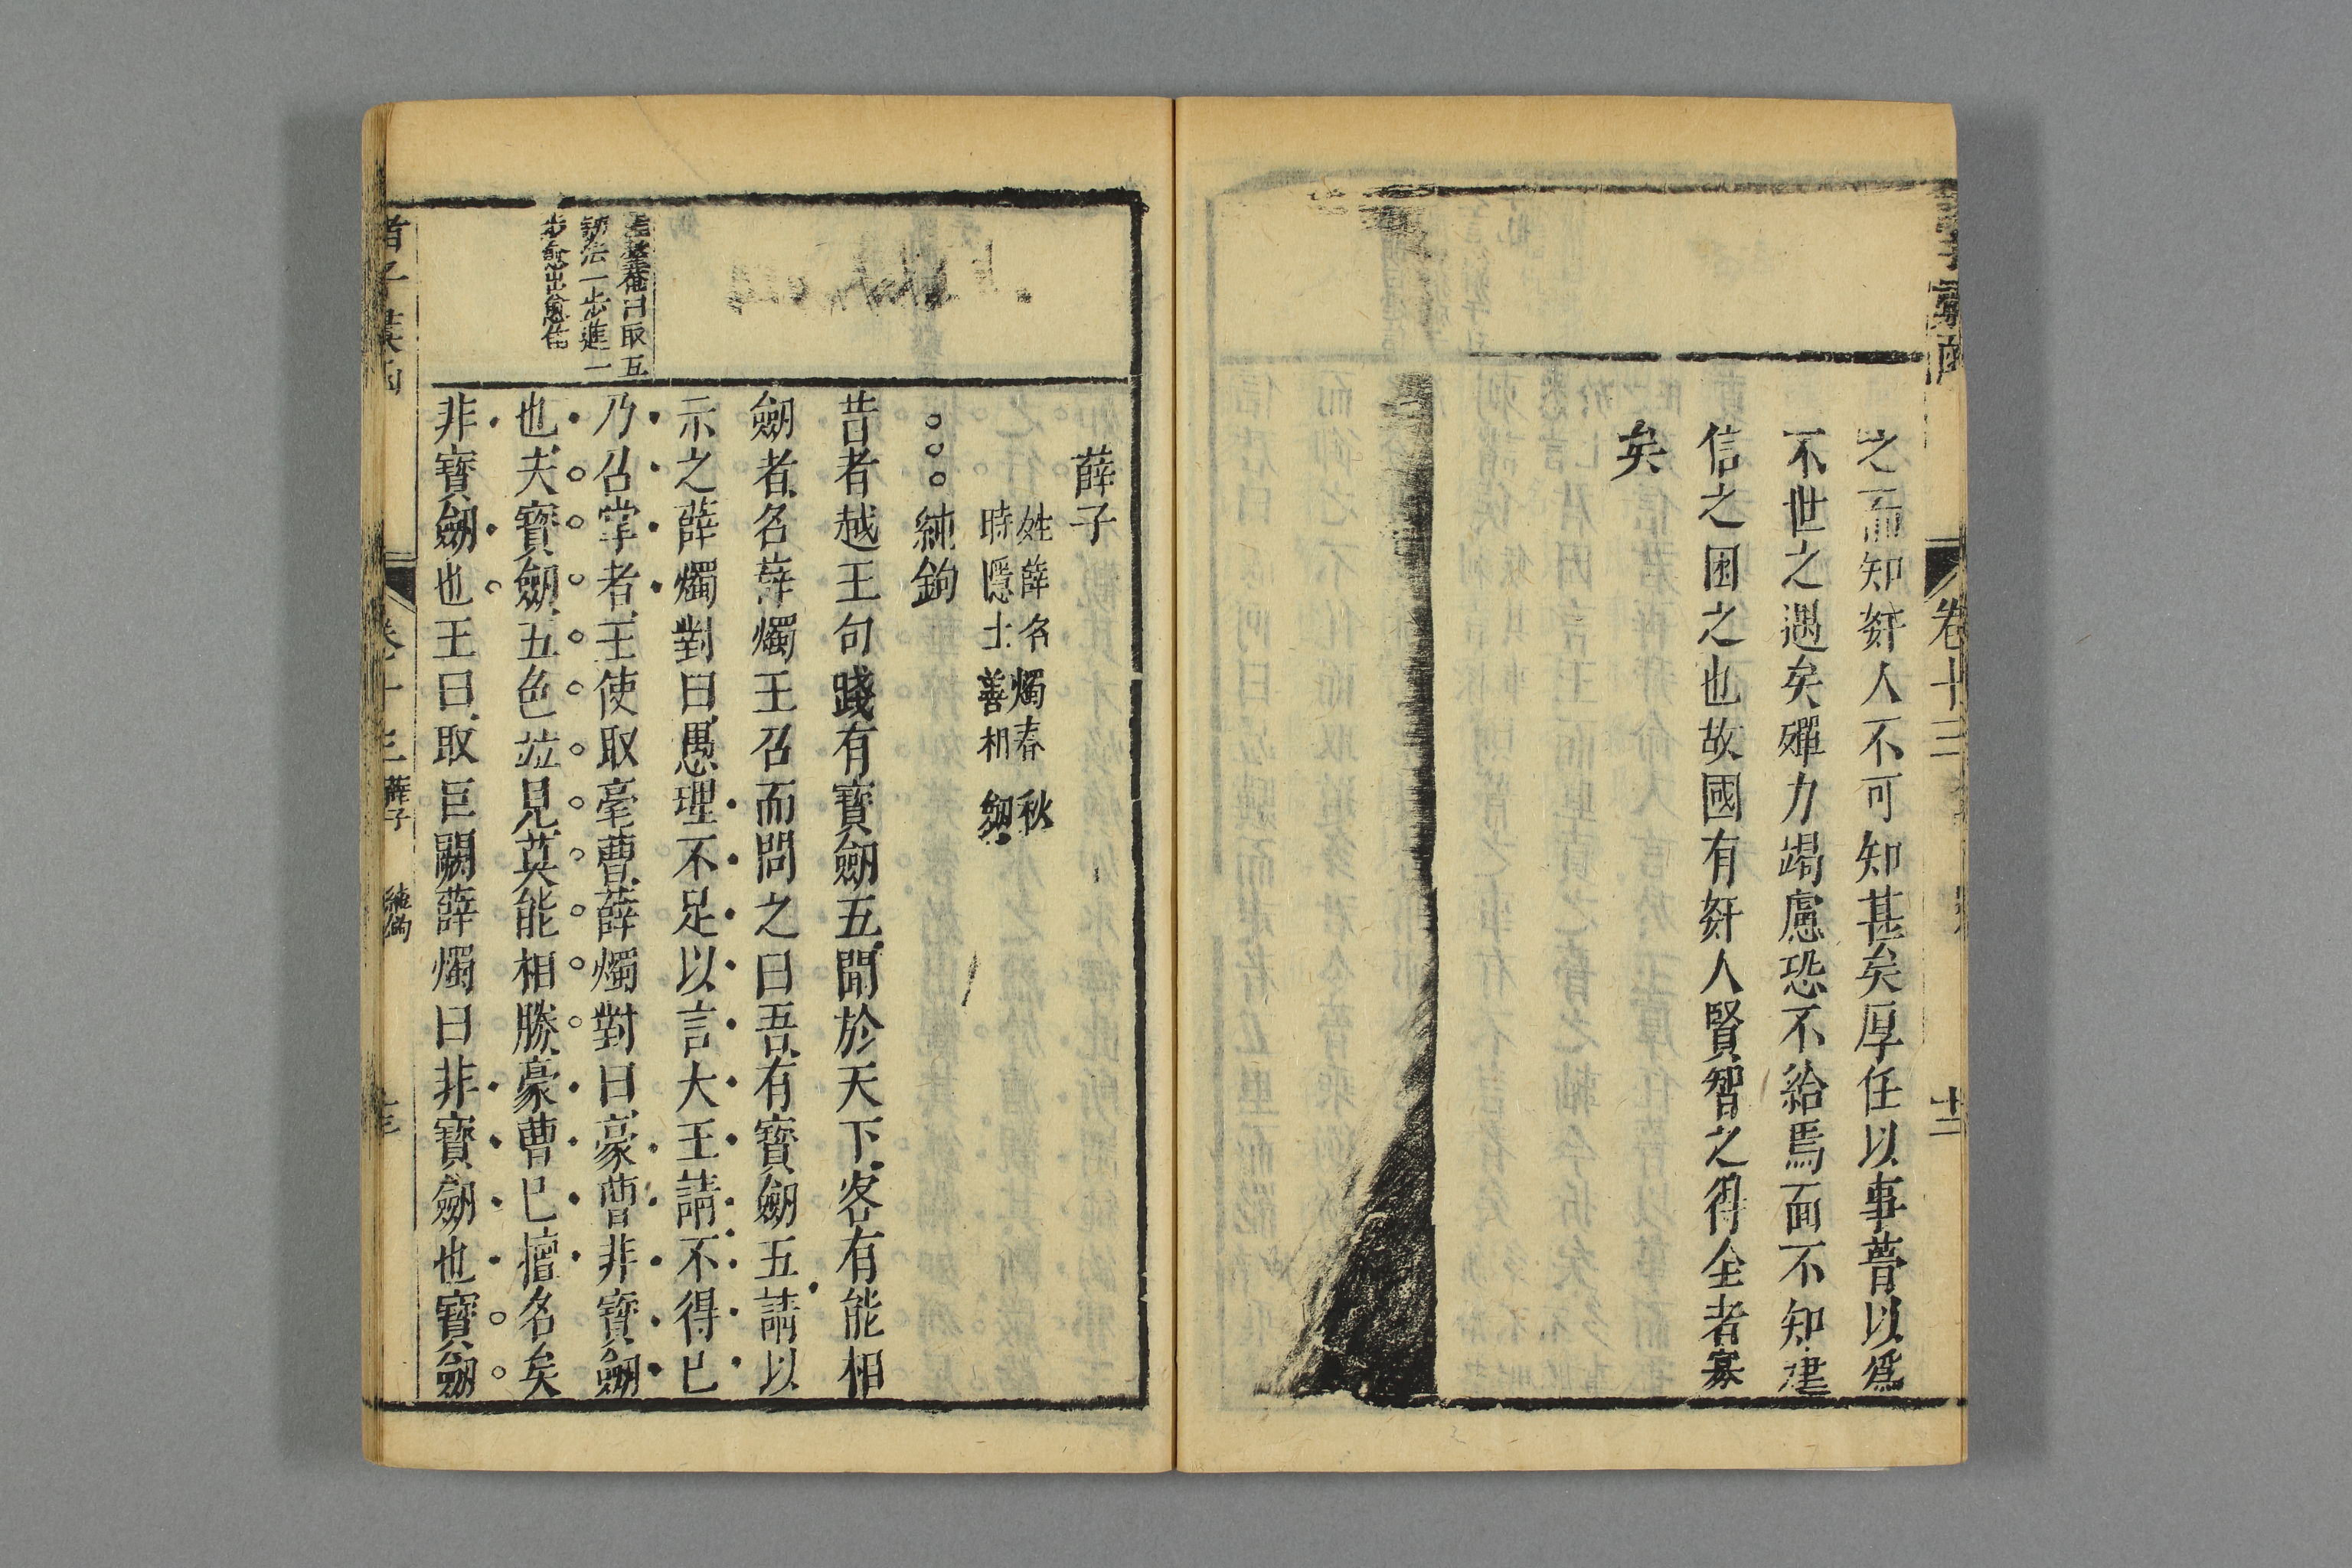 之而知奸人不可知甚矣厚任以事普以爲
不世之遇矣殫力竭慮恐不給焉而不知建
信之困之也故國有奸人賢智之得全者寡
矣
卷十三
十二
薛子
姓薛名燭春秋
時隱士善相劒
純鈎
昔者越王句踐有寶劒五聞於天下客有能相
劒者名薛燭王召而問之曰吾有寶劒五請以
示之薛燭對曰愚理不足以言大王請不得已
乃召掌者王使取毫曹薛燭對曰豪曹非寶劒
也夫寶劒五色竝見莫能相勝豪曹已擅名矣
非寶劒也王曰取巨闕薛燭曰非寶劒也寶劒
菴曰取五
劒法一步進一
步愈出愈佳
薛子
純鈎